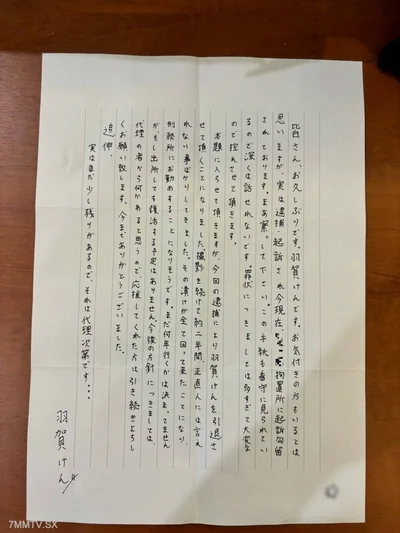 皆さん、お久しぶりです。羽賀けんです。お気付きの方もいるとは
思いますが、実は逮捕・起訴され今現在、拘置所に起訴勾留
されております。まあ察して下さい。この手紙も看守に見られてい
るので深くは話せれないです。罪状につきましては多すぎて大変な
ので控えさせて頂きます。
本題に入らせて頂きますが、今回の逮捕により羽賀けんを引退さ
せて頂くことになりました。撮影を続けて約二年間、正直人には言え
れない事ばかりしてきました。その漬けが全て回って来たことになり、
刑務所にお勤めすることになりそうです。まだ何年行くかは決まってません
が、もし出所しても復活する予定はありません。今後の方針につきましては、
代理の者から何かあると思うので応援してくれた方は引き続きよろし
くお願い致します。今までありがとうございました。
追伸、
実はまだ少し残りがあるので、それは代理次第です・・・
羽賀けん
7MMTV.SX